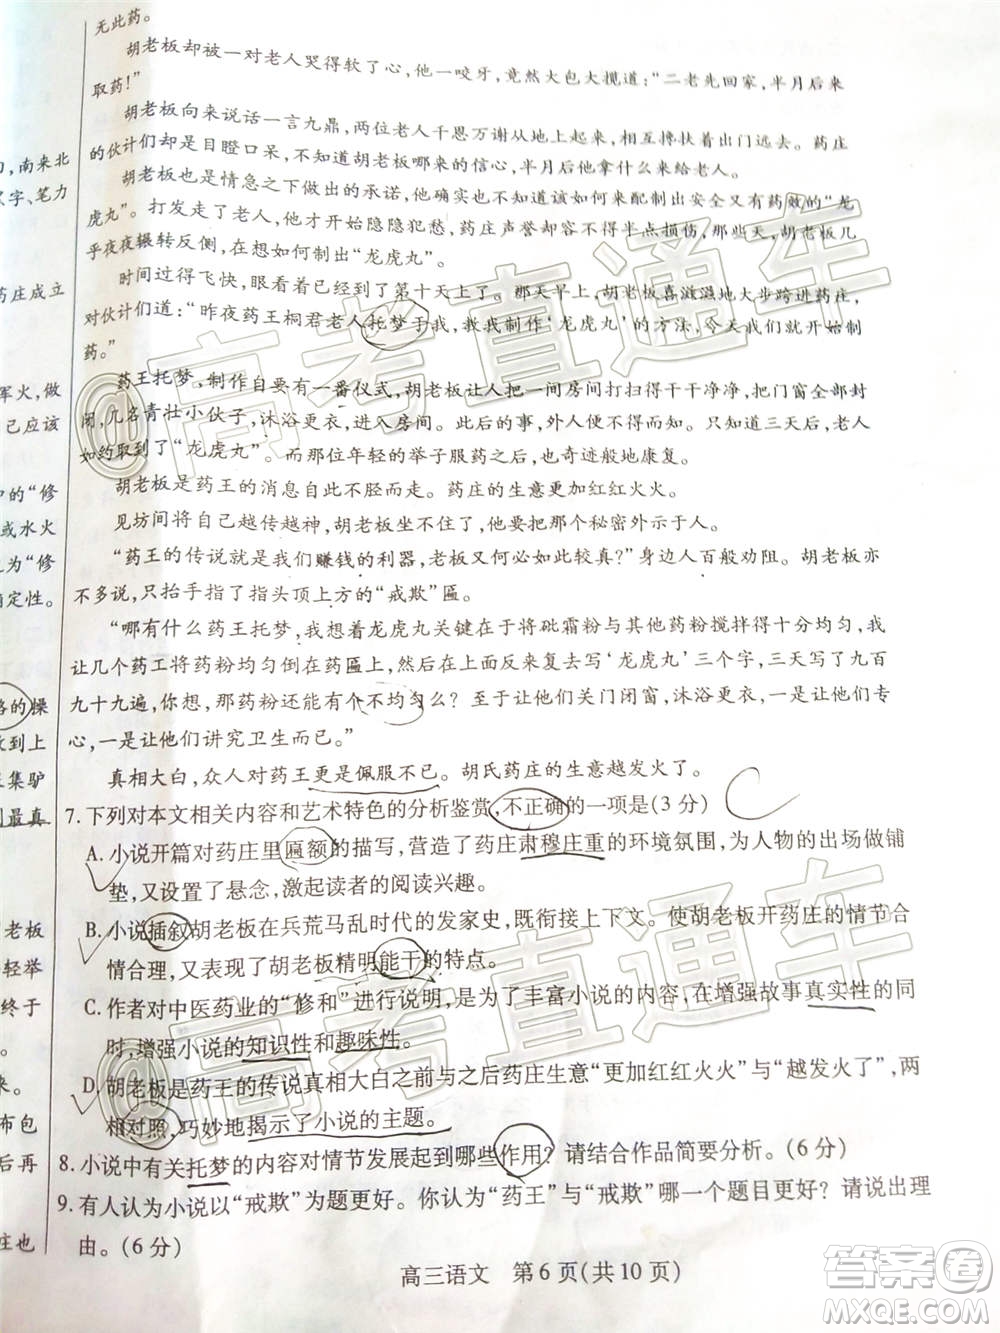 无此药。
胡老板却被一对老人哭得软了心，他一咬牙，竟然大包大揽道：“二老先回家，半月后来
取药！”
胡老板向来说话一言九鼎，两位老人千恩万谢从地上起来，相互搀扶着出门远去。药庄
的伙计们却是目瞪口呆，不知道胡老板哪来的信心，半月后他拿什么来给老人。
胡老板也是情急之下做出的承诺，他确实并不知道该如何来配制出安全又有药效的“龙
虎丸”。打发走了老人，他才开始隐隐犯愁，药庄声誉却容不得半点损伤，那些天，胡老板几
乎夜夜辗转反侧，在想如何制出“龙虎丸”。
时间过得飞快，眼看着已到了第十天上了。那天早上，胡老板喜滋滋地大步跨进药庄，
对伙计们道：“昨夜药王桐君老人托梦于我，教我制作‘龙虎丸’的方法，今天我们就开始制
药。”
药王托梦，制作自要有一番仪式，胡老板让人把一间房间打扫得干干净净，把门窗全部封
闭，几名青壮小伙子，沐浴更衣，进入房间。此后的事，外人便不得而知。只知道三天后，老人
如约取到了“龙虎丸”。而那位年轻的举子服药之后，也奇迹般地康复。
胡老板是药王的消息自此不胫而走。药庄的生意更加红红火火。
见坊间将自己越传越神，胡老板坐不住了，他要把那个秘密外示于人。
“药王的传说就是我们赚钱的利器，老板又何必如此较真？”身边人百般劝阻。胡老板亦
不多说，只抬手指了指头顶上方的“戒欺”匾。
“哪有什么药王托梦，我想着龙虎丸关键在于将砒霜粉与其它药粉搅拌得十分均匀，我
让几个药工将药粉均匀倒在药匾上，然后在上面反复写‘龙虎丸’三个字，三天写了九百
九十九遍，你想，那药粉还能不均匀么？至于让他们关门闭窗，沐浴更衣，一是让他们专
心，一是让他们讲究卫生而已。”
真相大白，众人对药王更是佩服不已。胡氏药庄的生意越发火了。
7.下列对本文相关内容和艺术特色的分析鉴赏，不正确的一项是(3分)
A.小说开篇对药庄里匾额的描写，营造了药庄肃穆庄重的环境氛围，为人物的出场做铺
垫，又设置了悬念，激起读者的阅读兴趣。
B.小说插叙胡老板在兵荒马乱时代的发家史，既衔接上下文。使胡老板开药庄的情节合
情合理，又表现了胡老板精明能干的特点。
C.作者对中医药业的“修和”进行说明，是为了丰富小说的内容，在增强故事真实性的同
时，增强小说的知识性和趣味性。
D.胡老板是药王的传说真相大白之前与之后药庄生意“更加红红火火”与“越发火了”，两
相对照，巧妙地揭示了小说的主题。
8.小说中有关托梦的内容对情节发展起到哪些作用？请结合作品简要分析。(6分)
9.有人认为小说以“戒欺”为题更好。你认为“药王”与“戒欺”哪一个题目更好？请说出理
由。(6分)
高三语文 第6页(共10页)
，南来北
字、笔力
药庄成立
军火，做
己应该
中的“修
或水火
为“修
定性。
的操
到上
集驴
最真
老板
轻举
终于
。
来。
布包
后再
庄也
@高考直通车
@高考直通车
答案圈
MXQE.COM